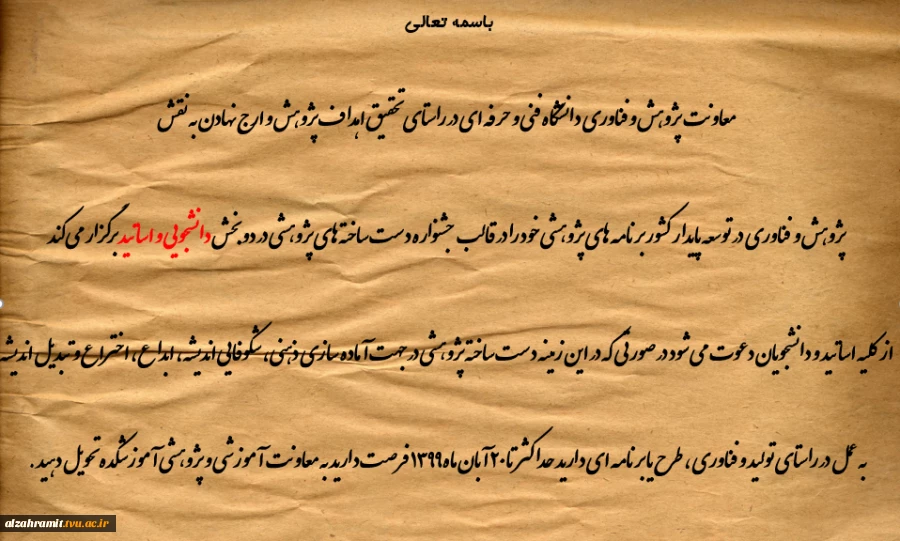 باسمه تعالی
معاونت پژوهش و فناوری دانشگاه فنی و حرفه ای در راستای تحقیق اهداف پژوهش و ارج نهادن به نقش
پژوهش و فناوری در توسعه پایدار کشور برنامه های پژوهشی خود را در قالب جشنواره دست ساخته های پژوهشی در دو بخش دانشجویی و اساتید برگزار می کند
از کلیه اساتید و دانشجویان دعوت می شود در صورتی که در این زمینه دست ساخته پژوهشی در جهت آماده سازی ذهنی، شکوفایی اندیشه، ابداع، اختراع و تبدیل اندیشه
به عمل در راستای تولید و فناوری، طرح یا برنامه ای دارید حداکثر تا ۲۰ آبان ماه ۱۳۹۹ فرصت دارید به معاونت آموزشی و پژوهشی آموزشکده تحویل دهید.
alzahramit.tvu.ac.ir